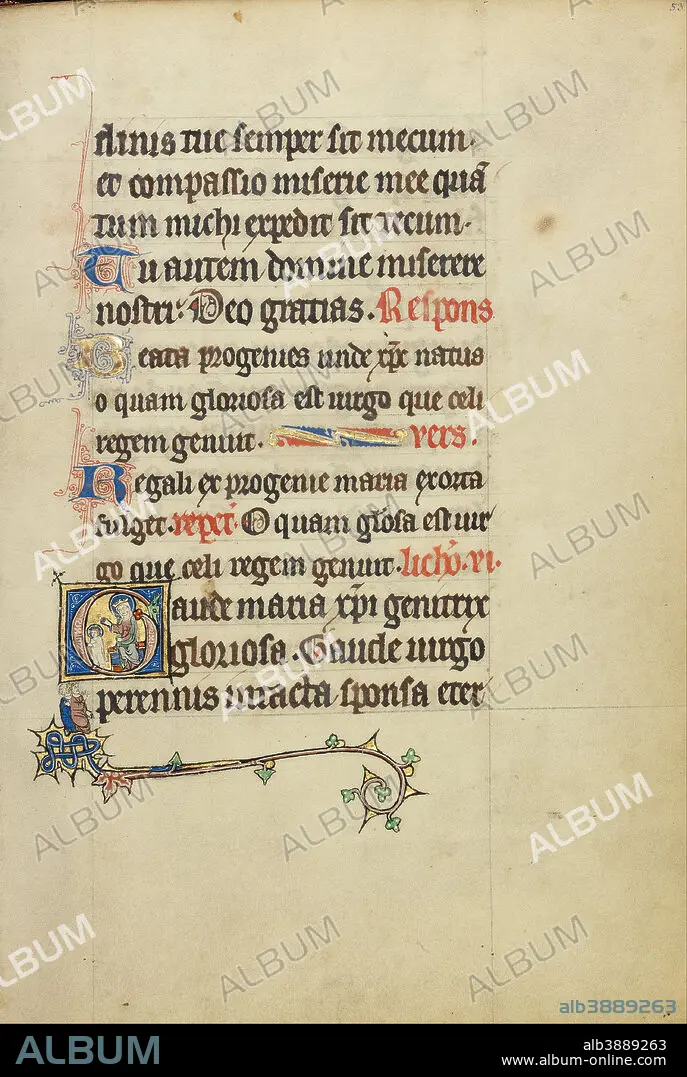 53
dinis tue semper sit mecum.
et compassio miserie mee quā
tum michi expedit sit tecum.
Tu autem domine miserere
nostri. Deo gratias. Respons
Beata progenies unde xp̄c natus
o quam gloriosa est uirgo que celi
regem genuit. vers.
Regali ex progenie maria exorta
fulget. repet. O quam gl̄osa est uir
go que celi regem genuit. .vi.
Gaude maria xp̄i genitrix
gloriosa. Gaude uirgo
perennis intacta sponsa eter
alb3889263
ALBUM
alb3889263
www.album-online.com